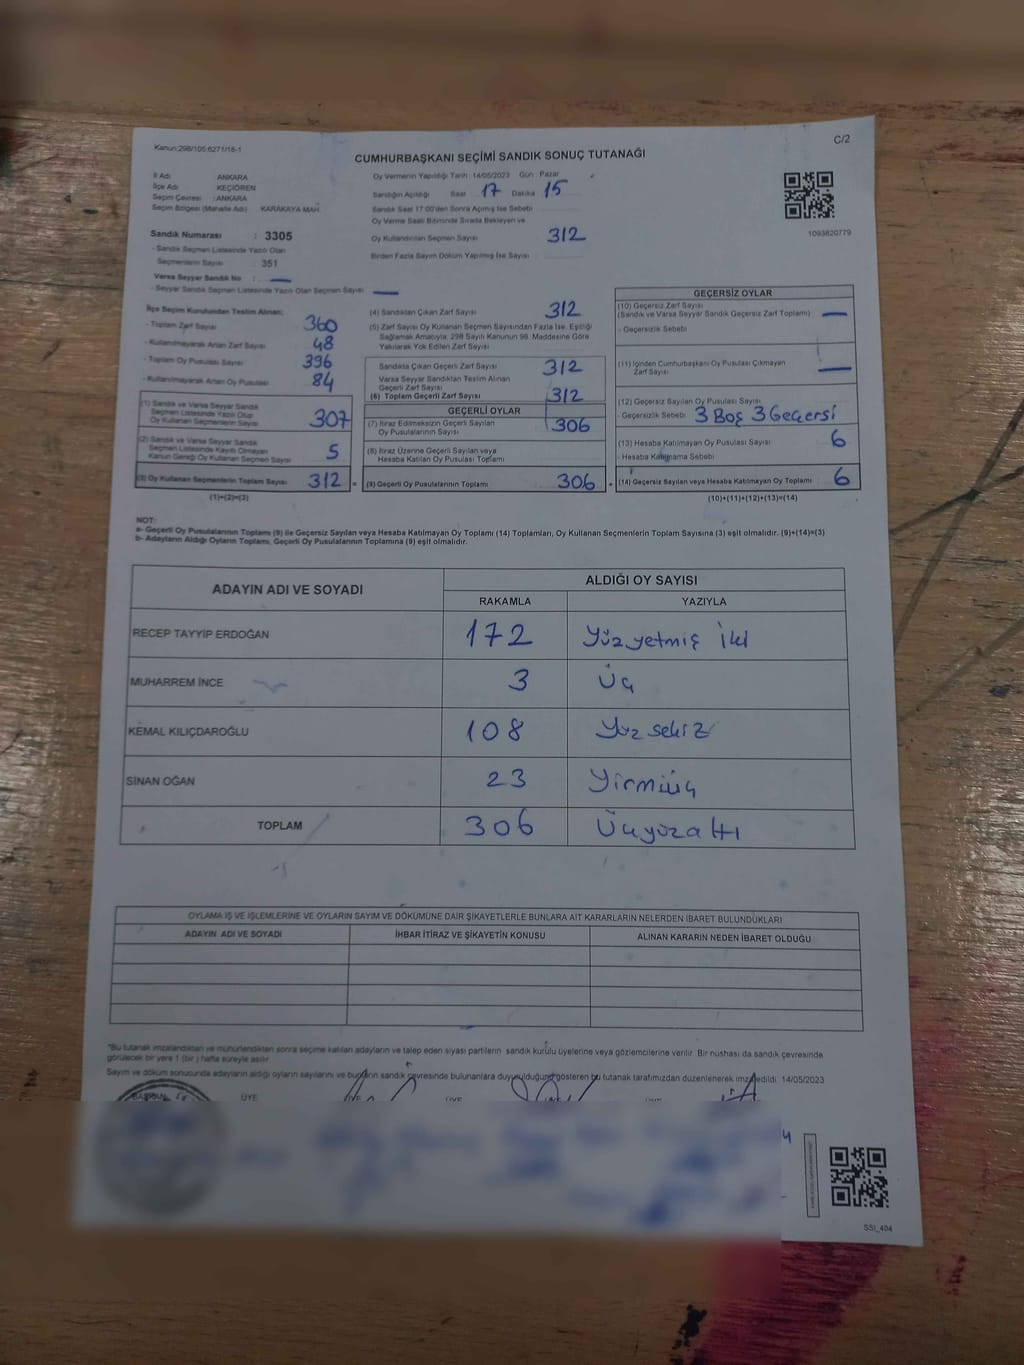 Kanun:298/105:6271/18-1
C/2
CUMHURBAŞKANI SEÇİMİ SANDIK SONUÇ TUTANAĞI
İl Adı ANKARA
İlçe Adı KEÇİÖREN
Seçim Çevresi : ANKARA
Seçim Bölgesi (Mahalle Adı) KARAKAYA MAH.
Sandık Numarası : 3305
- Sandık Seçmen Listesinde Yazılı Olan
Seçmenlerin Sayısı : 351
Varsa Seyyar Sandık No : —
- Seyyar Sandık Seçmen Listesinde Yazılı Olan Seçmen Sayısı —
Oy Vermenin Yapıldığı Tarih : 14/05/2023 Gün : Pazar
Sandığın Açıldığı Saat 17 Dakika 15
Sandık Saat 17:00'den Sonra Açılmış İse Sebebi
Oy Verme Saati Bitiminde Sırada Bekleyen ve
Oy Kullandırılan Seçmen Sayısı 312
Birden Fazla Sayım Döküm Yapılmış İse Sayısı
1093820779
İlçe Seçim Kurulundan Teslim Alınan;
- Toplam Zarf Sayısı 360
- Kullanılmayarak Artan Zarf Sayısı 48
- Toplam Oy Pusulası Sayısı 396
- Kullanılmayarak Artan Oy Pusulası 84
(1) Sandık ve Varsa Seyyar Sandık
Seçmen Listesinde Yazılı Olup
Oy Kullanan Seçmen Sayısı 307
(2) Sandık ve Varsa Seyyar Sandık
Seçmen Listesinde Kayıtlı Olmayan
Kanun Gereği Oy Kullanan Seçmen Sayısı 5
(3) Oy Kullanan Seçmenlerin Toplam Sayısı 312
(1)+(2)=(3)
(4) Sandıktan Çıkan Zarf Sayısı 312
(5) Zarf Sayısı Oy Kullanan Seçmen Sayısından Fazla İse, Eşitliği
Sağlamak Amacıyla; 298 Sayılı Kanunun 98. Maddesine Göre
Yakılarak Yok Edilen Zarf Sayısı
Sandıkta Çıkan Geçerli Zarf Sayısı 312
Varsa Seyyar Sandıktan Teslim Alınan
Geçerli Zarf Sayısı
(6) Toplam Geçerli Zarf Sayısı 312
GEÇERLİ OYLAR
(7) İtiraz Edilmeksizin Geçerli Sayılan
Oy Pusulalarının Sayısı 306
(8) İtiraz Üzerine Geçerli Sayılan veya
Hesaba Katılan Oy Pusulası Toplamı
(9) Geçerli Oy Pusulalarının Toplamı 306
GEÇERSİZ OYLAR
(10) Geçersiz Zarf Sayısı
(Sandık ve Varsa Seyyar Sandık Geçersiz Zarf Toplamı) —
- Geçersizlik Sebebi
(11) İçinden Cumhurbaşkanı Oy Pusulası Çıkmayan
Zarf Sayısı —
(12) Geçersiz Sayılan Oy Pusulası Sayısı
- Geçersizlik Sebebi 3 Boş 3 Geçersi
(13) Hesaba Katılmayan Oy Pusulası Sayısı 6
- Hesaba Katılmama Sebebi
(14) Geçersiz Sayılan veya Hesaba Katılmayan Oy Toplamı 6
(10)+(11)+(12)+(13)=(14)
NOT:
a- Geçerli Oy Pusulalarının Toplamı (9) ile Geçersiz Sayılan veya Hesaba Katılmayan Oy Toplamı (14) Toplamları, Oy Kullanan Seçmenlerin Toplam Sayısına (3) eşit olmalıdır. (9)+(14)=(3)
b- Adayların Aldığı Oyların Toplamı, Geçerli Oy Pusulalarının Toplamına (9) eşit olmalıdır.
ADAYIN ADI VE SOYADI ALDIĞI OY SAYISI
RAKAMLA YAZIYLA
RECEP TAYYİP ERDOĞAN 172 Yüzyetmiş iki
MUHARREM İNCE 3 Üç
KEMAL KILIÇDAROĞLU 108 Yüz sekiz
SİNAN OĞAN 23 Yirmiüç
TOPLAM 306 Üçyüzaltı
OYLAMA İŞ VE İŞLEMLERİNE VE OYLARIN SAYIM VE DÖKÜMÜNE DAİR ŞİKAYETLERLE BUNLARA AİT KARARLARIN NELERDEN İBARET BULUNDUKLARI
ADAYIN ADI VE SOYADI İHBAR İTİRAZ VE ŞİKAYETİN KONUSU ALINAN KARARIN NEDEN İBARET OLDUĞU
"Bu tutanak imzalandıktan ve mühürlendikten sonra seçime katılan adayların ve talep eden siyasi partilerin sandık kurulu üyelerine veya gözlemcilerine verilir. Bir nüshası da sandık çevresinde
görülecek bir yere 1 (bir) hafta süreyle asılır.
Sayım ve döküm sonucunda adayların aldığı oyların sayılarını ve bunların sandık çevresinde bulunanlara duyurulduğunu gösteren bu tutanak tarafımızdan düzenlenerek imza edildi. 14/05/2023
BAŞKAN ÜYE ÜYE ÜYE
SSI_404